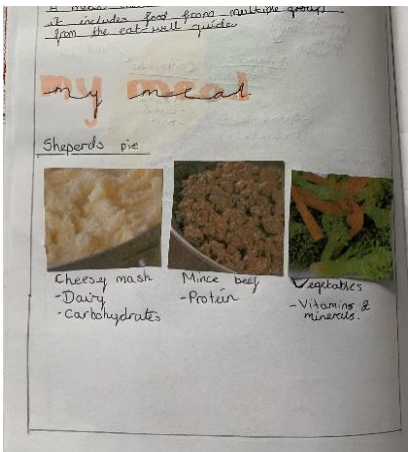 it includes food from multiple groups
from the eat-well guide.
my meal
Sheperds pie
Cheesy mash
-Dairy
-Carbohydrates
Mince beef
-Protein
Vegetables
-Vitamins &
minerals.